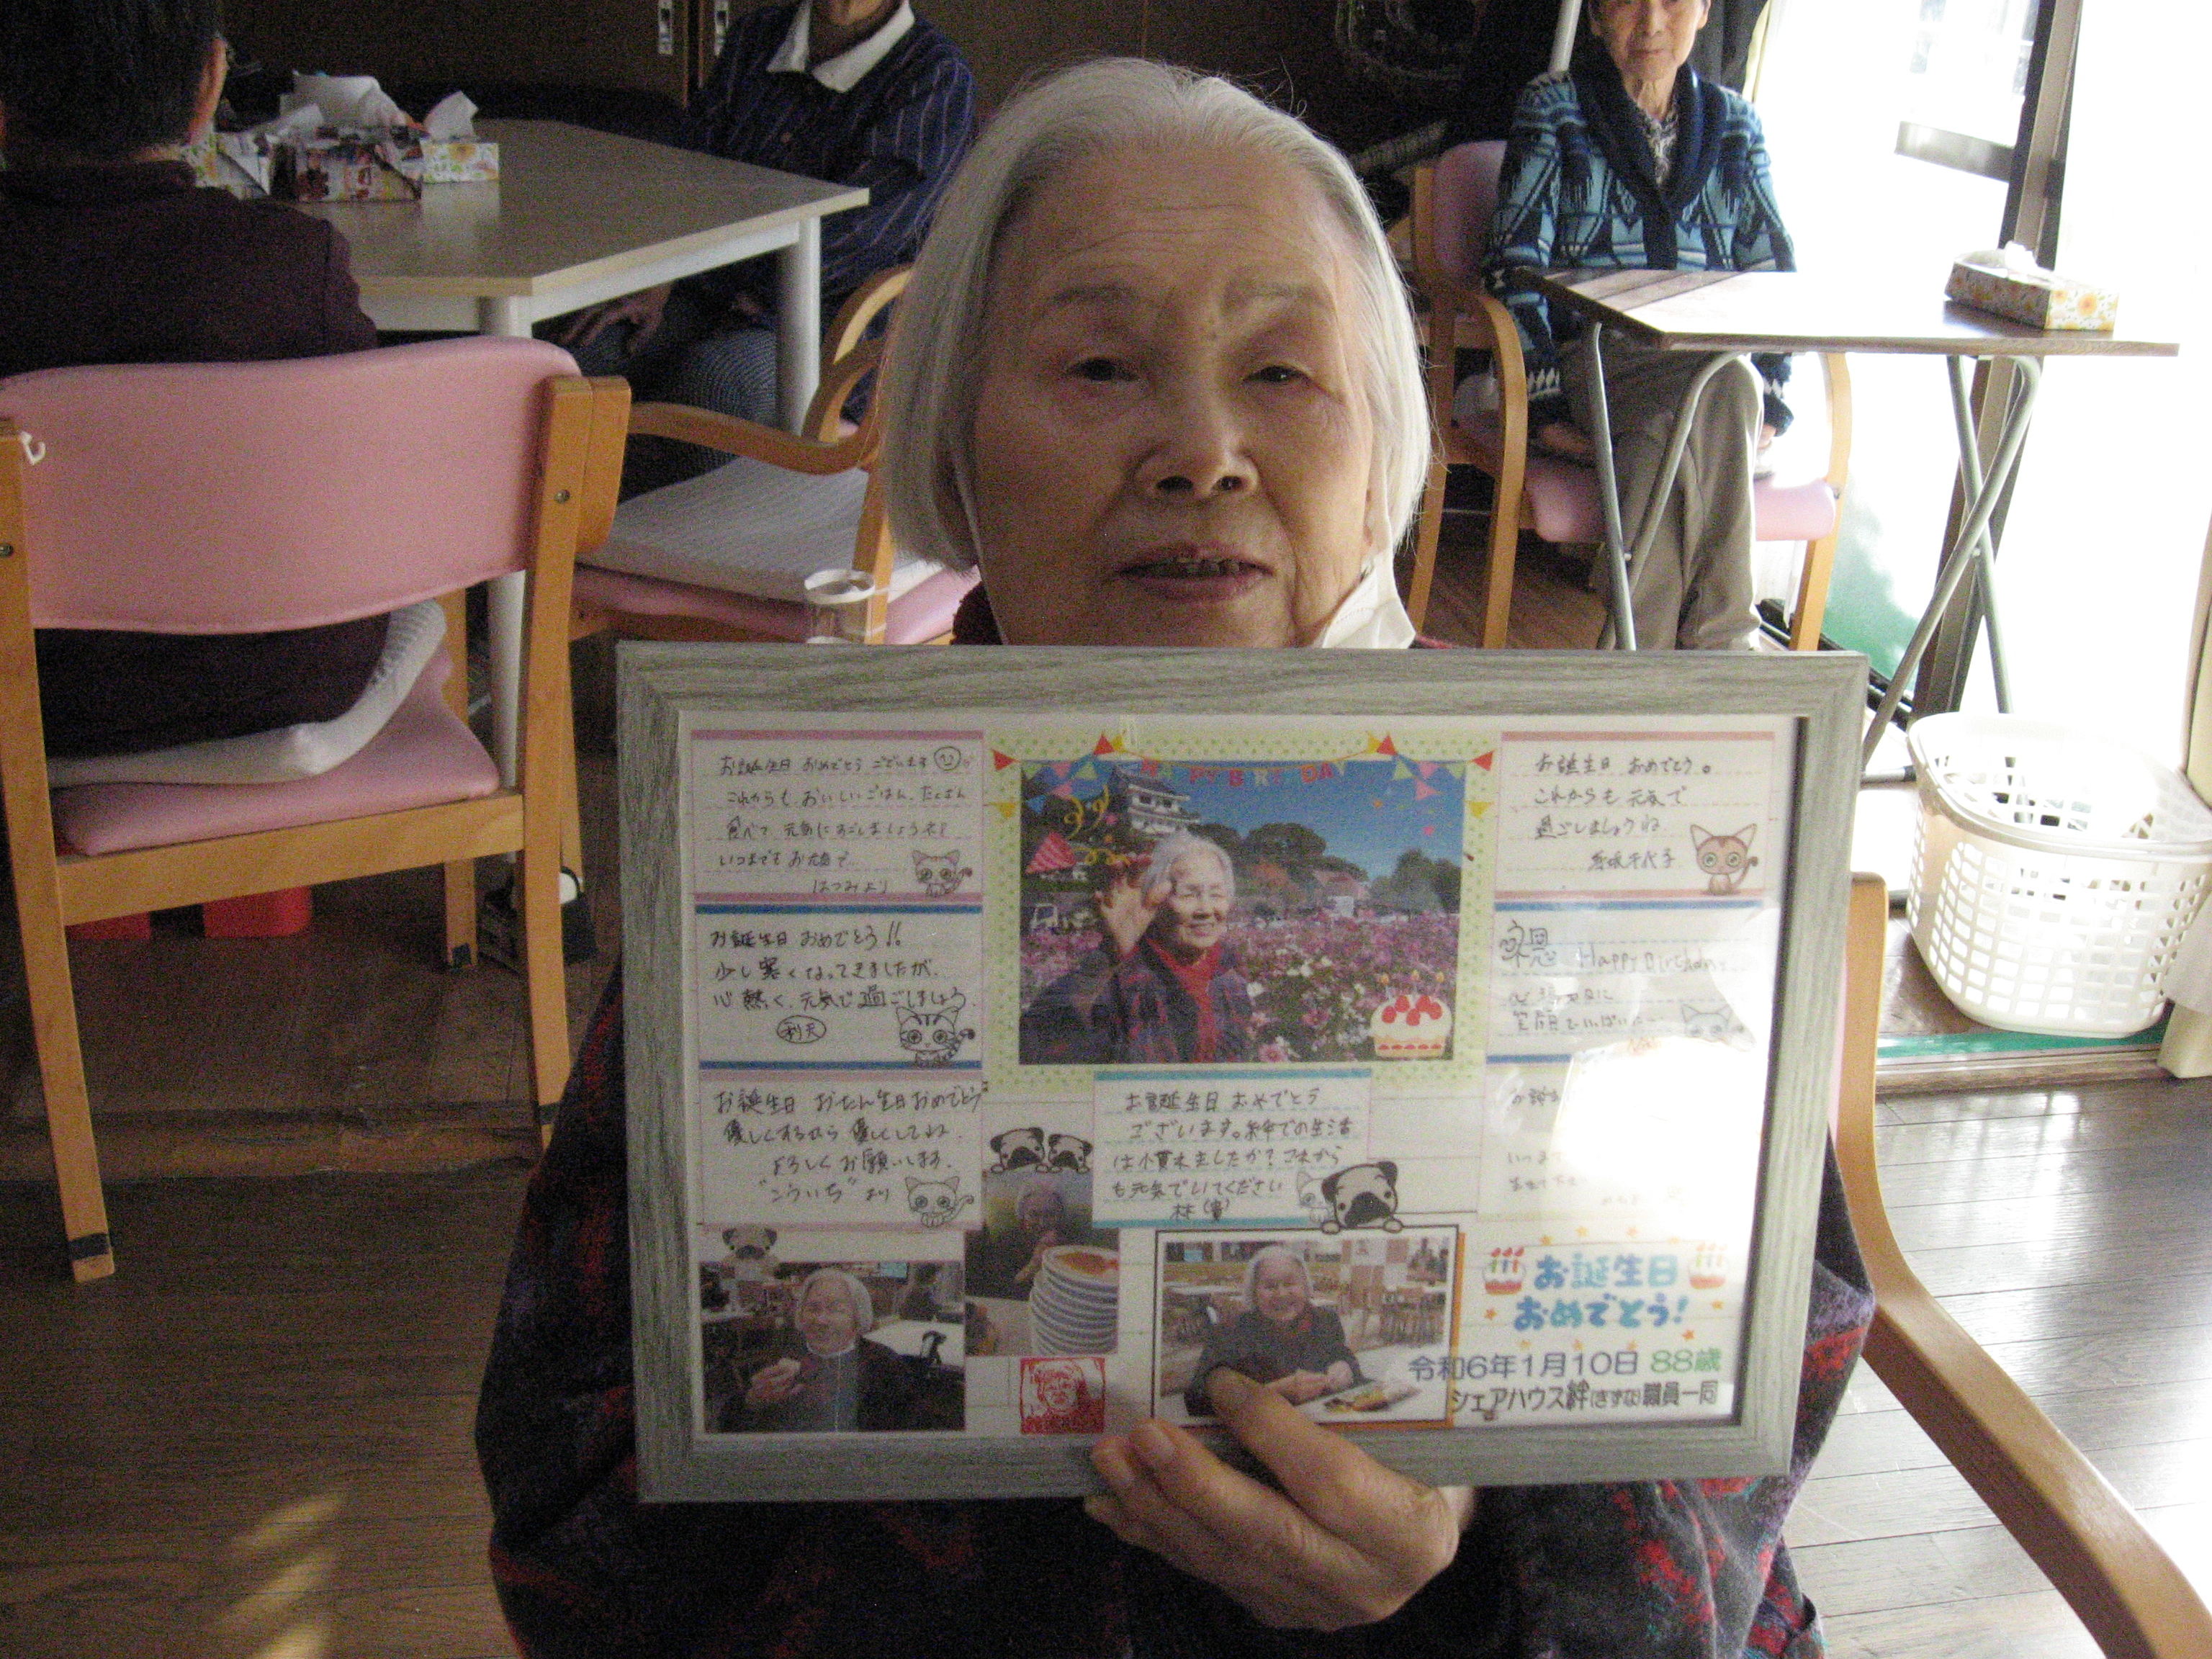 お誕生日 おめでとう ございます
これからも おいしいごはん、たくさん
食べて 元気にすごしましょうネ！
いつまでも お元気で
はつみより
HAPPY BIRTHDAY
お誕生日 おめでとう。
これからも 元気で
過ごしましょうね
千代子
お誕生日 おめでとう!!
少し寒くなってきましたが、
心熱く、元気で過ごしましょう。
Happy Birthday
笑顔でいっぱい
お誕生日 おたん生日おめでとう
優しくするから 優しくしてね。
よろしくお願いします。
"こういち"より
お誕生日 おめでとう
ございます。絆での生活
は慣れましたか？これから
も元気でいてください
林
お誕生日
おめでとう!
令和6年1月10日 88歳
シェアハウス絆(きずな)職員一同